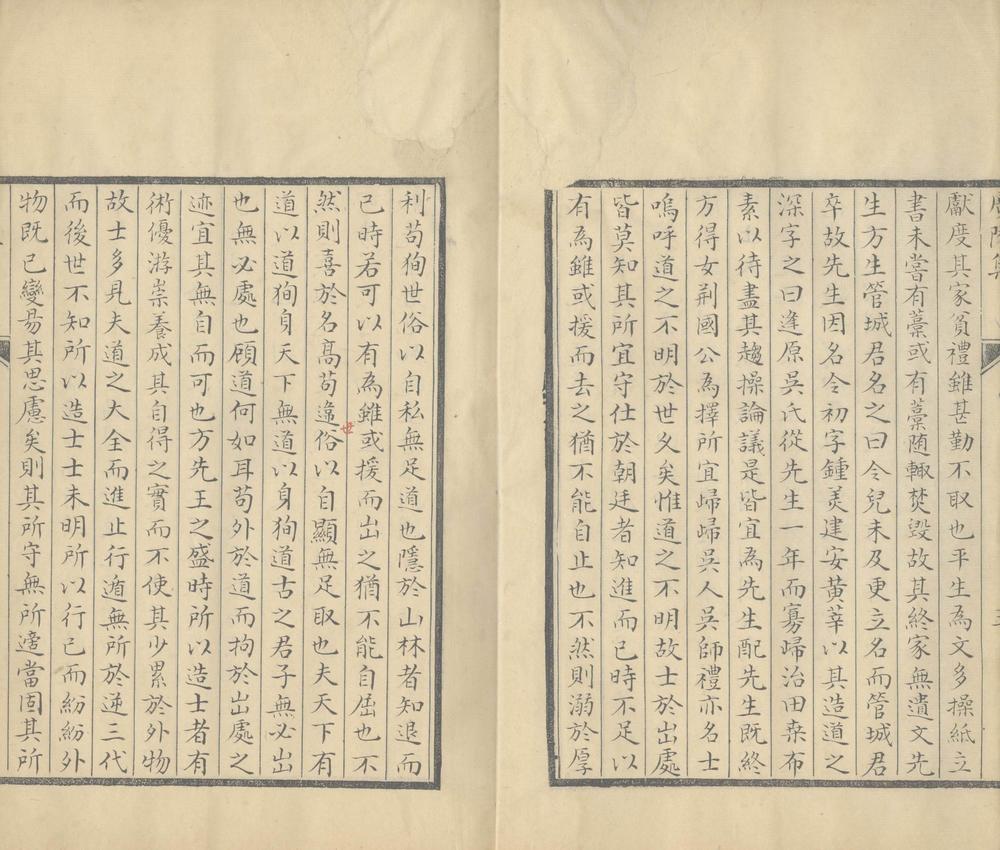 獻度其家貧禮雖甚勤不取也平生為文多操紙立
書未嘗有藁或有藁隨輙焚毀故其終家無遺文先
生方生管城君名之曰令兒未及更立名而管城君
卒故先生因名令初字鍾美建安黃莘以其造道之
深字之曰逢原吳氏從先生一年而寡歸治田桒布
素以待盡其趨操論議是皆宜為先生配先生既終
方得女荆國公為擇所宜歸歸吳人吳師禮亦名士
嗚呼道之不明於世久矣惟道之不明故士於出處
皆莫知其所宜守仕於朝廷者知進而已時不足以
有為雖或援而去之猶不能自止也不然則溺於厚
利苟狥世俗以自私無足道也隱於山林者知退而
已時若可以有為雖或援而出之猶不能自屈也不
然則喜於名高苟違俗以自顯無足取也夫天下有
世
道以道狥身天下無道以身狥道古之君子無必出
也無必處也顧道何如耳苟外於道而拘於出處之
迹宜其無自而可也方先王之盛時所以造士者有
術優游崇養成其自得之實而不使其少累於外物
故士多見夫道之大全而進止行遁無所於逆三代
而後世不知所以造士士未明所以行己而紛紛外
物既已變昜其思慮矣則其所守無所適當固其所